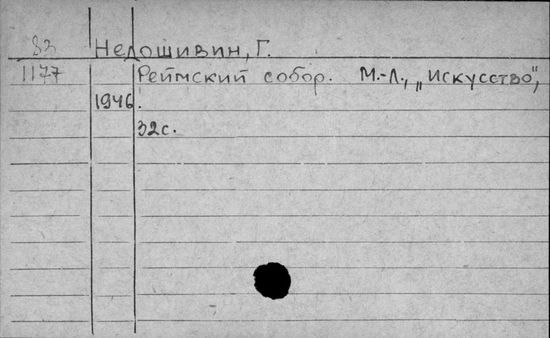 83 Недошивин, Г.
1177 Реймский собор. М.-Л., „Искусство“,
1946.
32с.